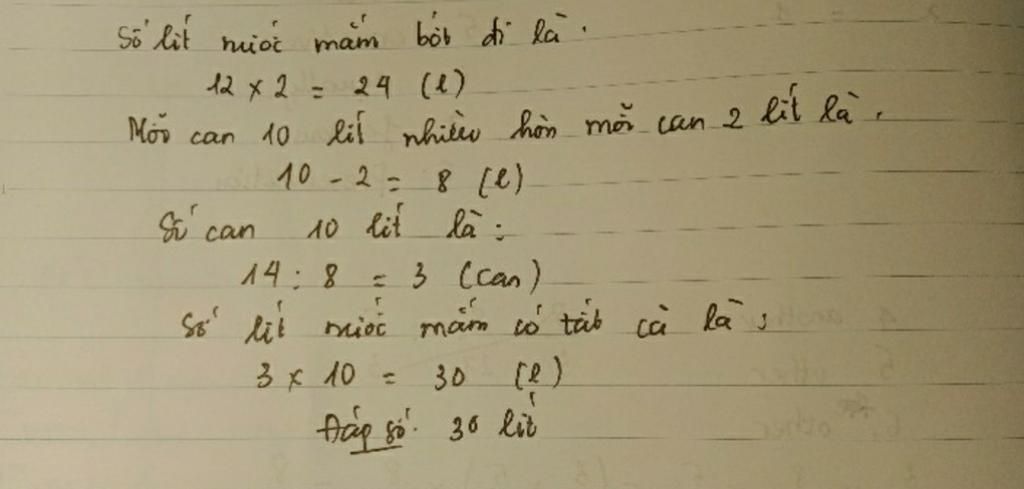 Số lít nước mắm bớt đi là.
12 x 2 = 24 (l)
Mỗi can 10 lít nhiều hơn mỗi can 2 lít là.
10 - 2 = 8 (l)
Số can 10 lít là:
14 : 8 = 3 (can)
Số lít nước mắm có tất cả là:
3 x 10 = 30 (l)
Đáp số. 30 lít